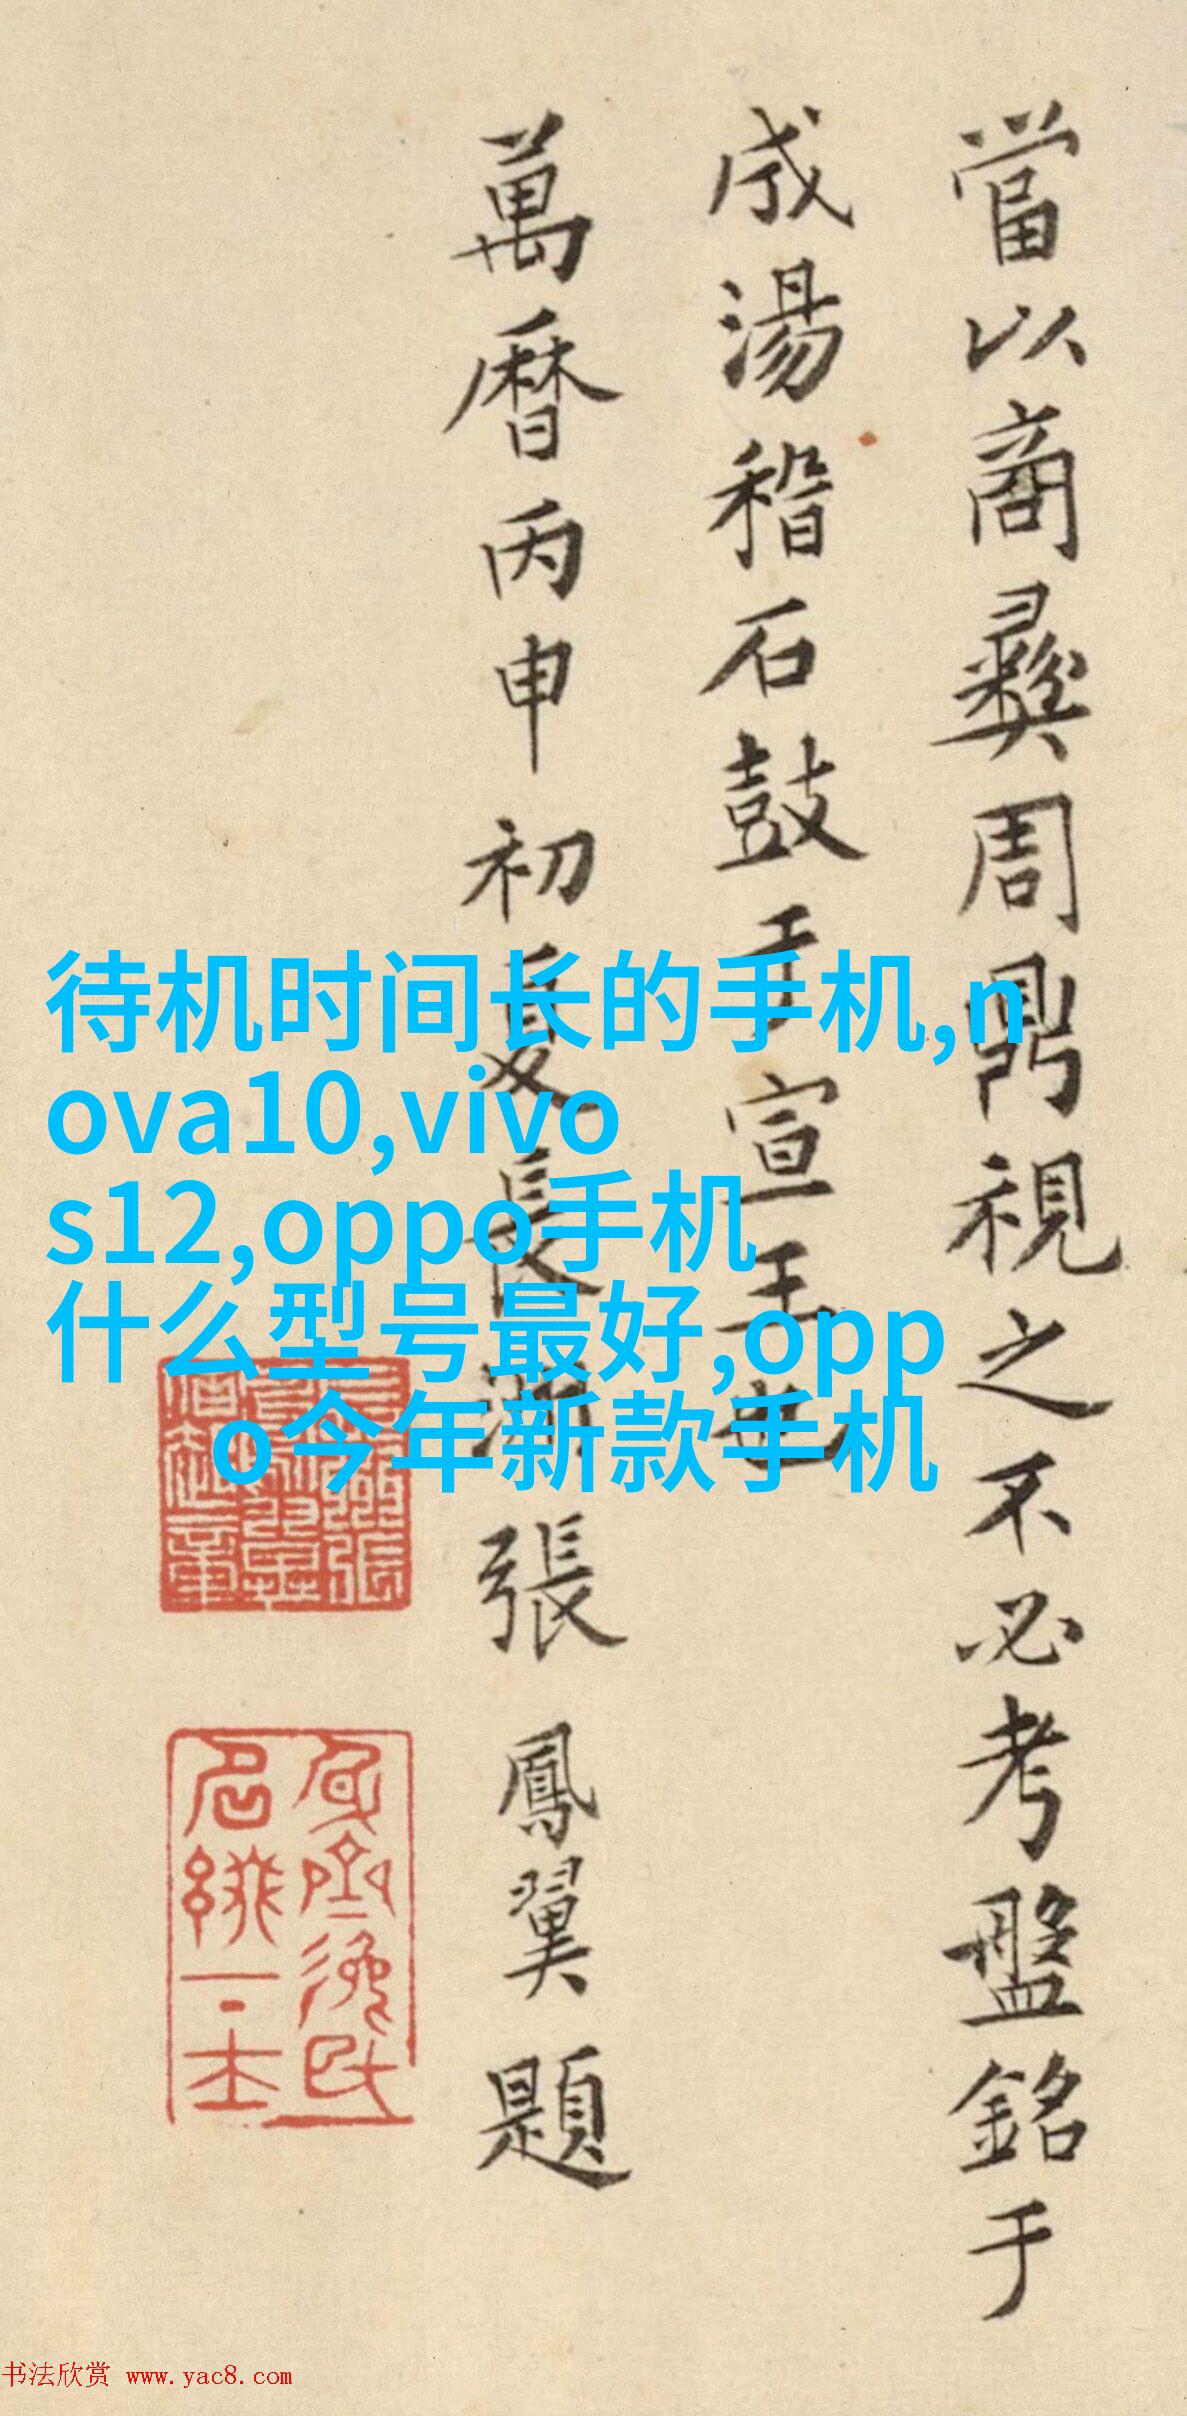 當以商彝周鼎視之不必考盤銘于
成湯稽石鼓于宣王也
萬曆丙申初夏長洲張鳳翼題
待机时间长的手机,n
ova10,vivo
s12,oppo手机
什么型号最好,opp
o今年新款手机
书法欣赏 www.yac8.com